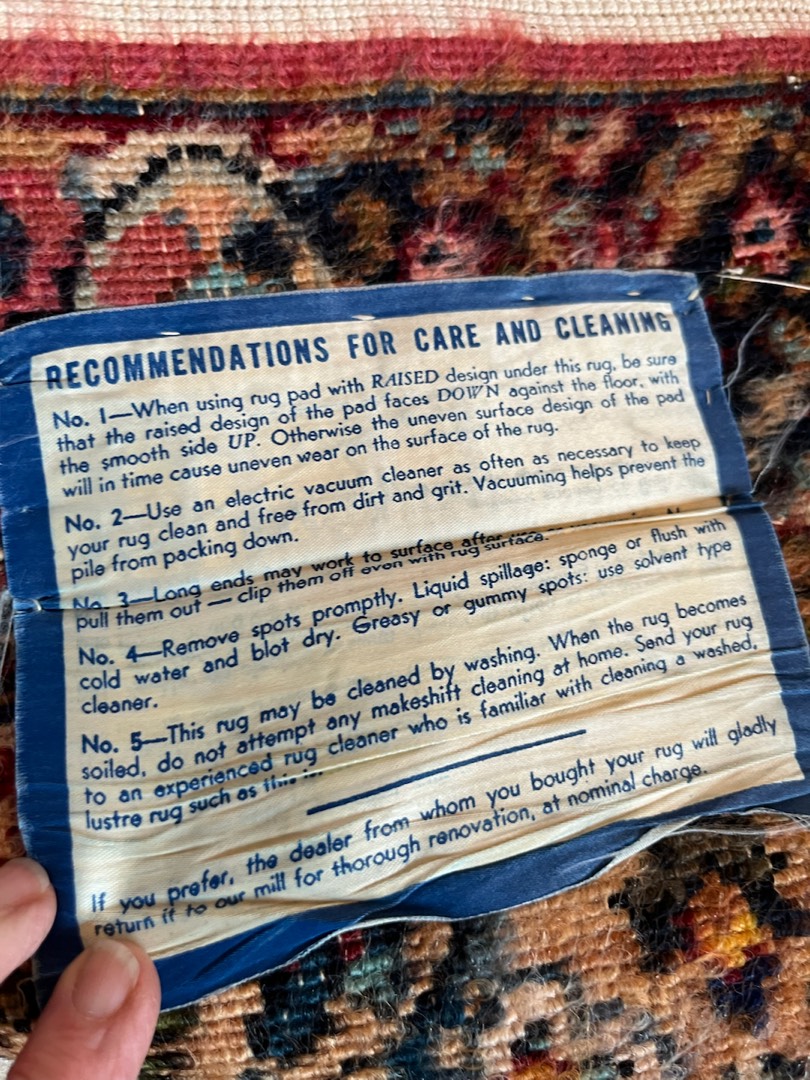 RECOMMENDATIONS FOR CARE AND CLEANING
No. 1—When using rug pad with RAISED design under this rug, be sure
that the raised design of the pad faces DOWN against the floor, with
the smooth side UP. Otherwise the uneven surface design of the pad
will in time cause uneven wear on the surface of the rug.
No. 2—Use an electric vacuum cleaner as often as necessary to keep
your rug clean and free from dirt and grit. Vacuuming helps prevent the
pile from packing down.
No. 3—Long ends may work to surface after
pull them out — clip them off even with rug surface.
No. 4—Remove spots promptly. Liquid spillage: sponge or flush with
cold water and blot dry. Greasy or gummy spots: use solvent type
cleaner.
No. 5—This rug may be cleaned by washing. When the rug becomes
soiled, do not attempt any makeshift cleaning at home. Send your rug
to an experienced rug cleaner who is familiar with cleaning a washed,
lustre rug such as
If you prefer, the dealer from whom you bought your rug will gladly
return it to our mill for thorough renovation, at nominal charge.